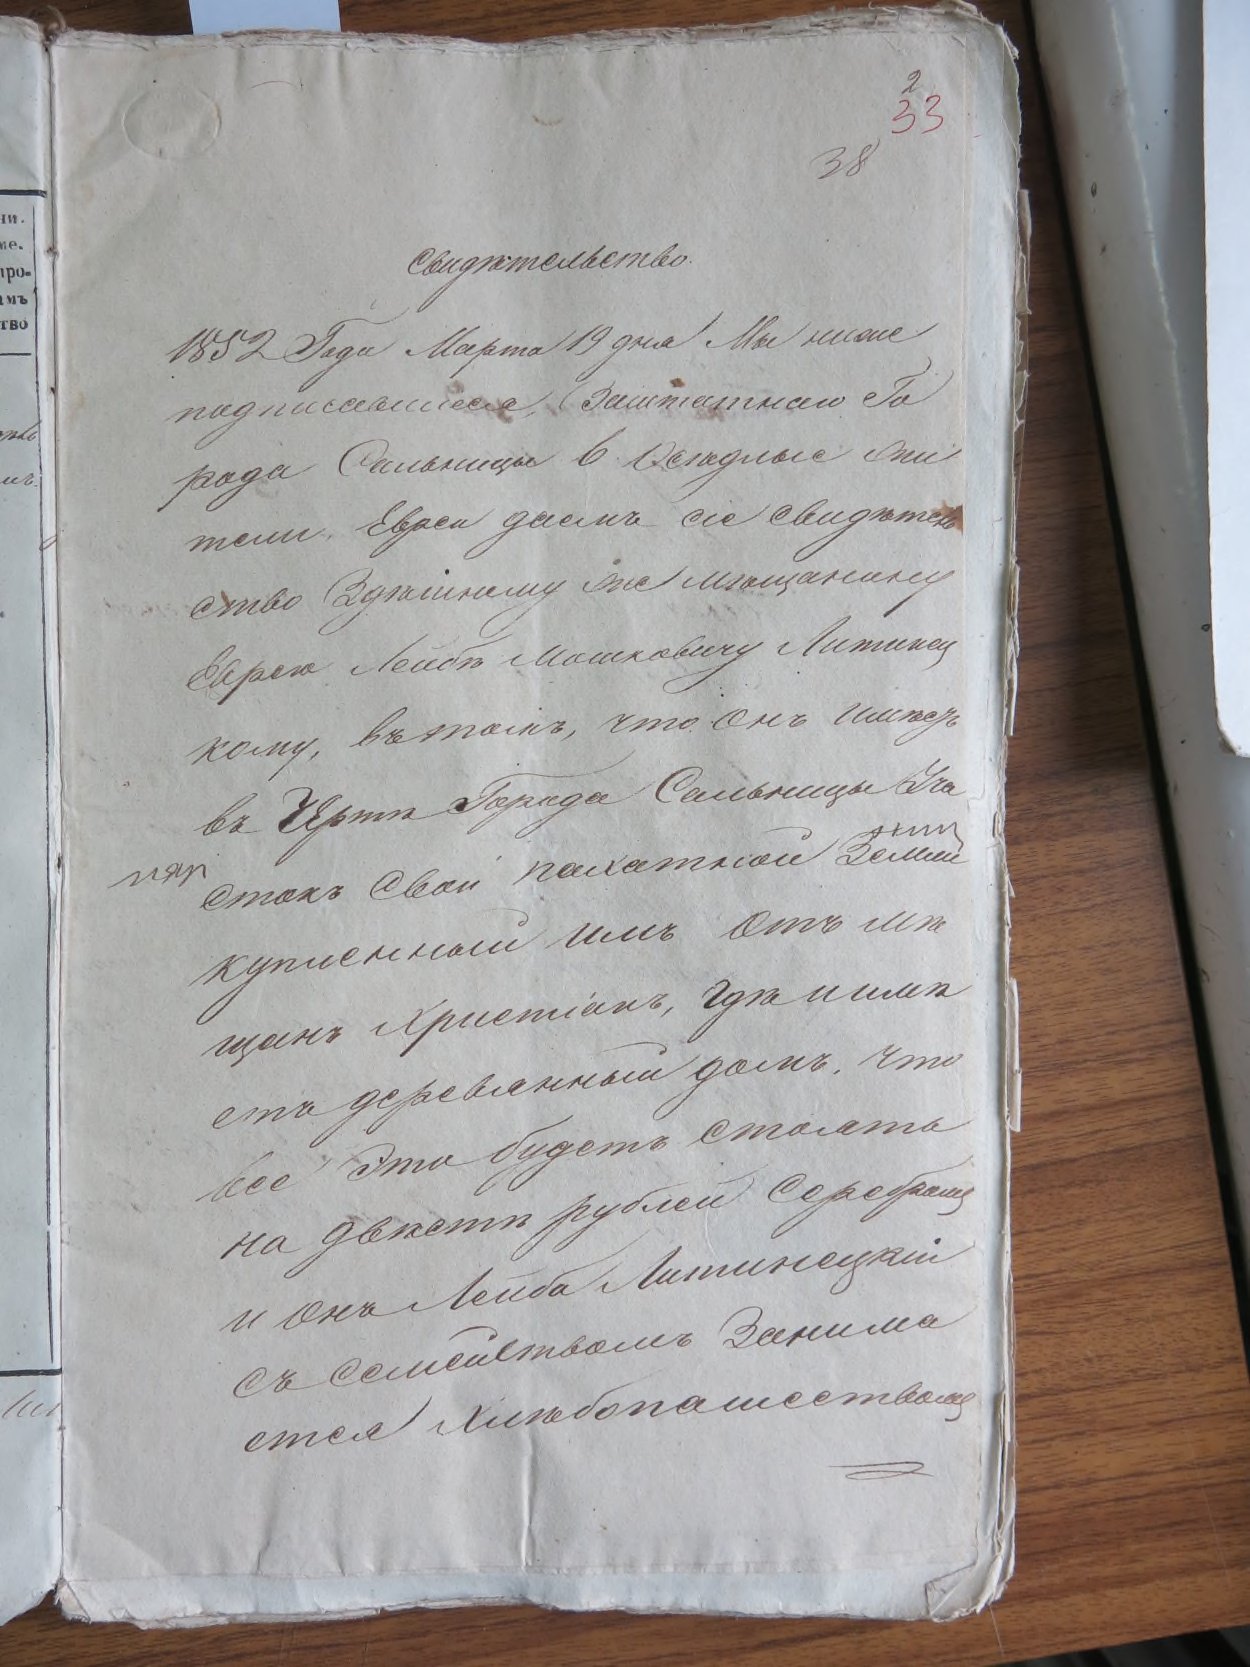 2
33
38
ни.
ме.
про-
амъ
тво
Свидѣтельство.
1852 Года Марта 19 дня Мы ниже
подписавшіеся, Заштатнаго Го
рода Сальницы Осѣдлые жи
тели, Евреи даемъ сіе свидѣтель
ство Здѣшнему же мѣщанину
Еврею Лейбѣ Мошковичу Литинец
кому, въ томъ, что онъ имѣетъ
въ Чертѣ Города Сальницы Уча
стокъ Свой пахатной Земли
купленный имъ Отъ мѣ
щанъ Христіанъ, гдѣ и имѣ
етъ деревянный домъ, что
все Это будетъ стоять
на двѣсти рублей Серебромъ
и онъ Лейба Литинецкій
съ семействомъ Занима
ется Хлѣбопашествомъ